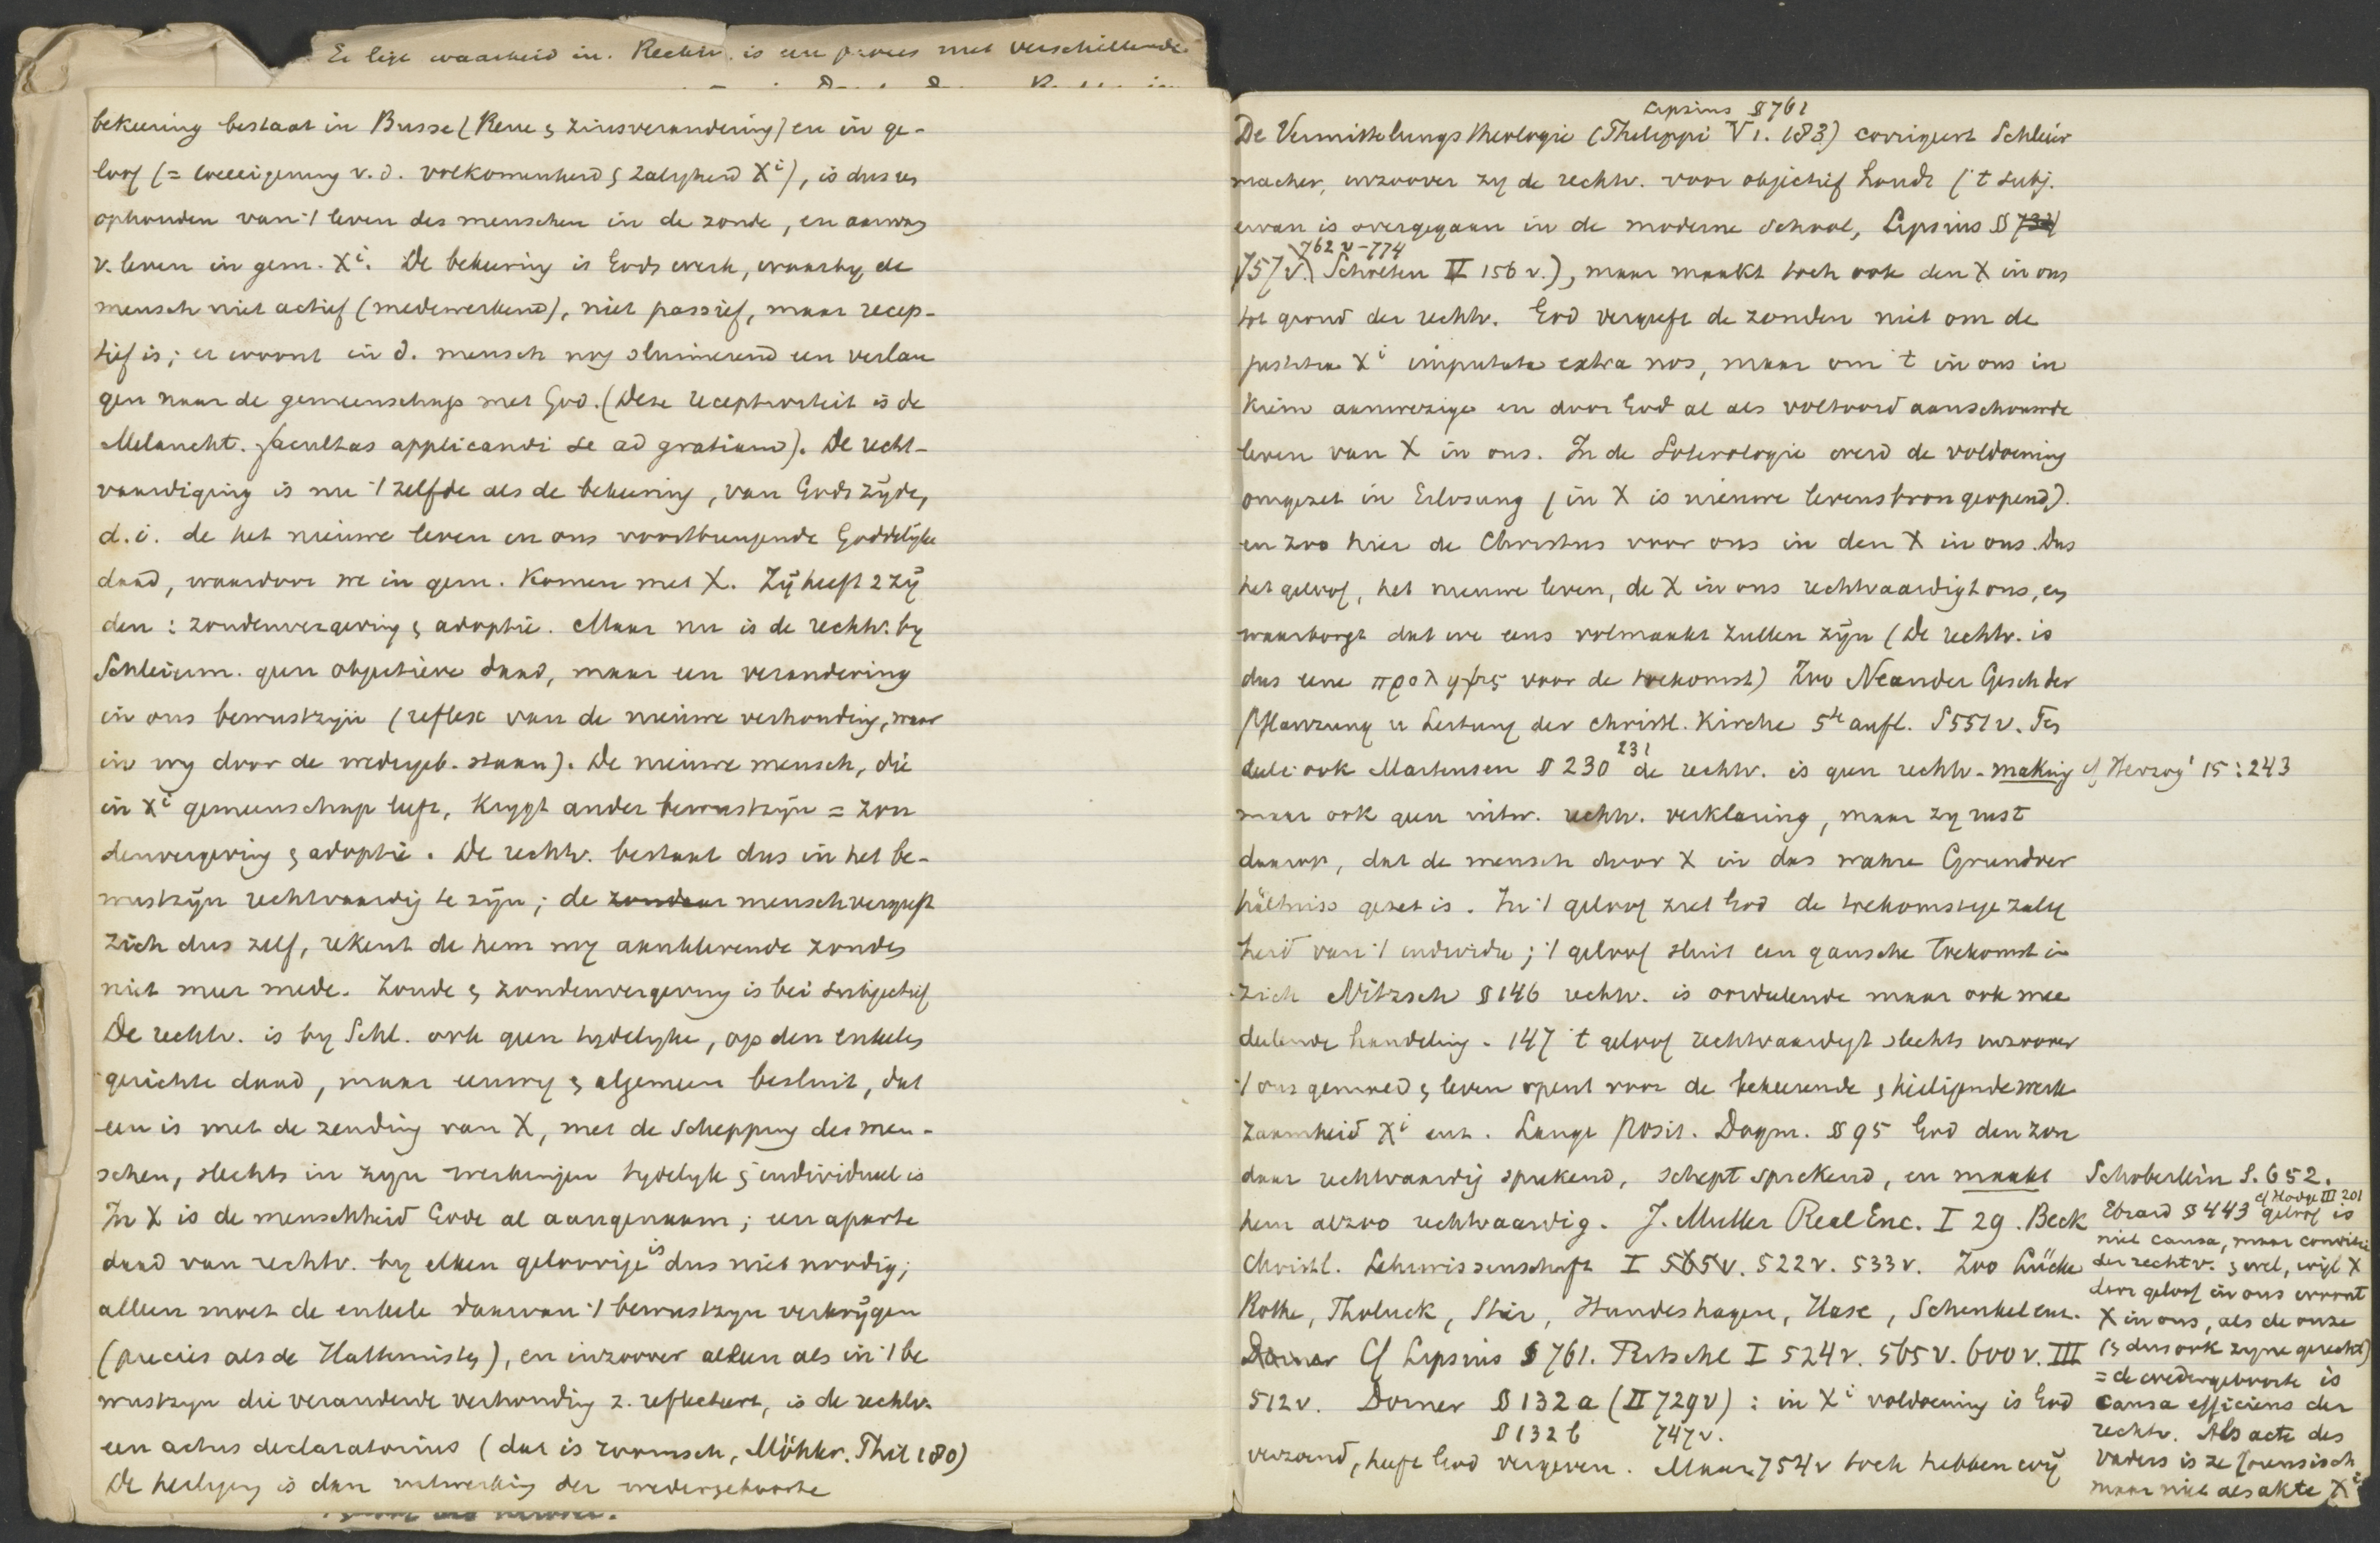 Er ligt waarheid in. Rechtv. is een proces met verschillende
bekeering bestaat in Busse (Reue & zinsverandering) en in ge-
loof (= toeeigening v.d. volkomenheid & zaligheid Xi), is dus
ophouden van 't leven des menschen in de zonde, en aanvang
v. leven in gem. Xi. De bekeering is Gods werk, waarby de
mensch niet actief (medewerkend), niet passief, maar recep-
tief is; er woont in d. mensch nog sluimerend een verlan
gen naar de gemeenschap met God. (Deze receptiviteit is de
Melancht. facultas applicandi se ad gratiam). De recht-
vaardiging is nu 't zelfde als de bekeering, van Gods zyde,
d.i. de het nieuwe leven in ons voortbrengende Goddelyke
daad, waardoor we in gem. komen met X. Zy heeft 2 zy
den : zondenvergeving & adoptie. Maar nu is de rechtv. by
Schleierm. geen objectieve daad, maar een verandering
in ons bewustzyn (reflex van de nieuwe verhouding, waar
in wy door de wedergeb. staan). De nieuwe mensch, die
in Xi gemeenschap leeft, krygt ander bewustzyn = zon
denvergeving & adoptie. De rechtv. bestaat dus in het be-
wustzyn rechtvaardig te zyn; de zondaar mensch vergeeft
zich dus zelf, rekent de hem nog aanklevende zonden
niet meer mede. Zonde & zondenvergeving is bei subjectief
De rechtv. is by Schl. ook geen tydelyke, op den enkelen
gerichte daad, maar eeuwig & algemeen besluit, dat
een is met de zending van X, met de schepping der men-
schen, slechts in zyn werkingen tydelyk & individueel is
In X is de menschheid Gode al aangenaam; een aparte
daad van rechtv. by elken geloovige is dus niet noodig;
alleen moet de enkele daarvan 't bewustzyn verkrygen
(precies als de Hattemisten), en inzoover alleen als in 't be
wustzyn die veranderde verhouding z. reflecteert, is de rechtv.
een actus declaratorius (dat is roomsch, Möhler. Phil 180)
De heiliging is dan uitwerking der wedergeboorte
Lipsius § 761
De Vermittelungstheologie (Philippi V 1. 183) corrigeert Schleier
macher, inzoover zy de rechtv. voor objectief houdt ('t subj.
ervan is overgegaan in de moderne school, Lipsius §
757 v. 762 v - 774 Scholten II 156 v.), maar maakt toch ook den X in ons
tot grond der rechtv. God vergeeft de zonden niet om de
justitia Xi imputata extra nos, maar om 't in ons in
kiem aanwezige en door God al als voltooid aanschouwde
leven van X in ons. In de Soterologie werd de voldoening
omgezet in Erlösung (in X is nieuwe levensbron geopend).
en zoo hier de Christus voor ons in den X in ons. Dus
het geloof, het nieuwe leven, de X in ons rechtvaardigt ons, en
waarborgt dat we eens volmaakt zullen zyn (De rechtv. is
dus eene προληψις voor de toekomst) Zoo Neander Gesch der
Pflanzung u Leitung der christl. Kirche 5te aufl. S 551 v. Ten
deele ook Martensen § 230 231 de rechtv. is geen rechtv.-making cf Herzog1 15 : 243
maar ook geen uitw. rechtv. verklaring, maar zy rust
daarop, dat de mensch door X in das wahre Grundver
hältniss gezet is. In 't geloof ziet God de toekomstige zalig
heid van 't individu; 't geloof sluit een gansche toekomst in
zich Nitzsch § 146 rechtv. is oordeelende maar ook mee
deelende handeling. 147 't geloof rechtvaardigt slechts inzoover
't ons gemoed & leven opent voor de bekeerende & heiligende werk
zaamheid Xi enz. Lange Posit. Dogm. § 95 God den zon
daar rechtvaardig sprekend, schept sprekend, en maakt
hem alzoo rechtvaardig. J. Muller Real Enc. I 29. Beck
Christl. Lehrwissenschaft I 565 v. 522 v. 533 v. Zoo Lücke
Rothe, Tholuck, Stier, Hundeshagen, Hase, Schenkel enz.
Dorner Cf Lipsius § 761. Ritschl I 524 v. 565 v. 600 v. III
512 v. Dorner § 132 a (II 729 v) : in Xi voldoening is God
§ 132 b 747 v.
verzoend, heeft God vergeven. Maar 754 v toch hebben wy
Schoberlein S. 652.
cf Hodge III 201
Ebrard § 443 geloof is
niet causa, maar conditie
der rechtv. & wel, wyl X
door geloof in ons woont
X in ons, als de onze
(& dus ook zyne gerecht)
= de wedergeboorte is
causa efficiens der
rechtv. Als acte des
Vaders is ze forensisch
maar niet als akte Xi